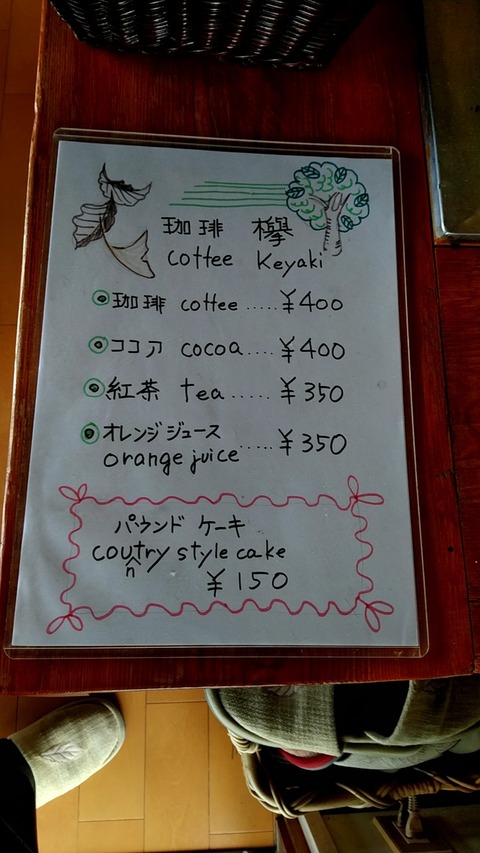 珈琲 欅
coffee Keyaki
珈琲 coffee ..... ¥400
ココア cocoa .... ¥400
紅茶 tea ...... ¥350
オレンジジュース
orange juice ..... ¥350
パウンド ケーキ
country style cake
¥150